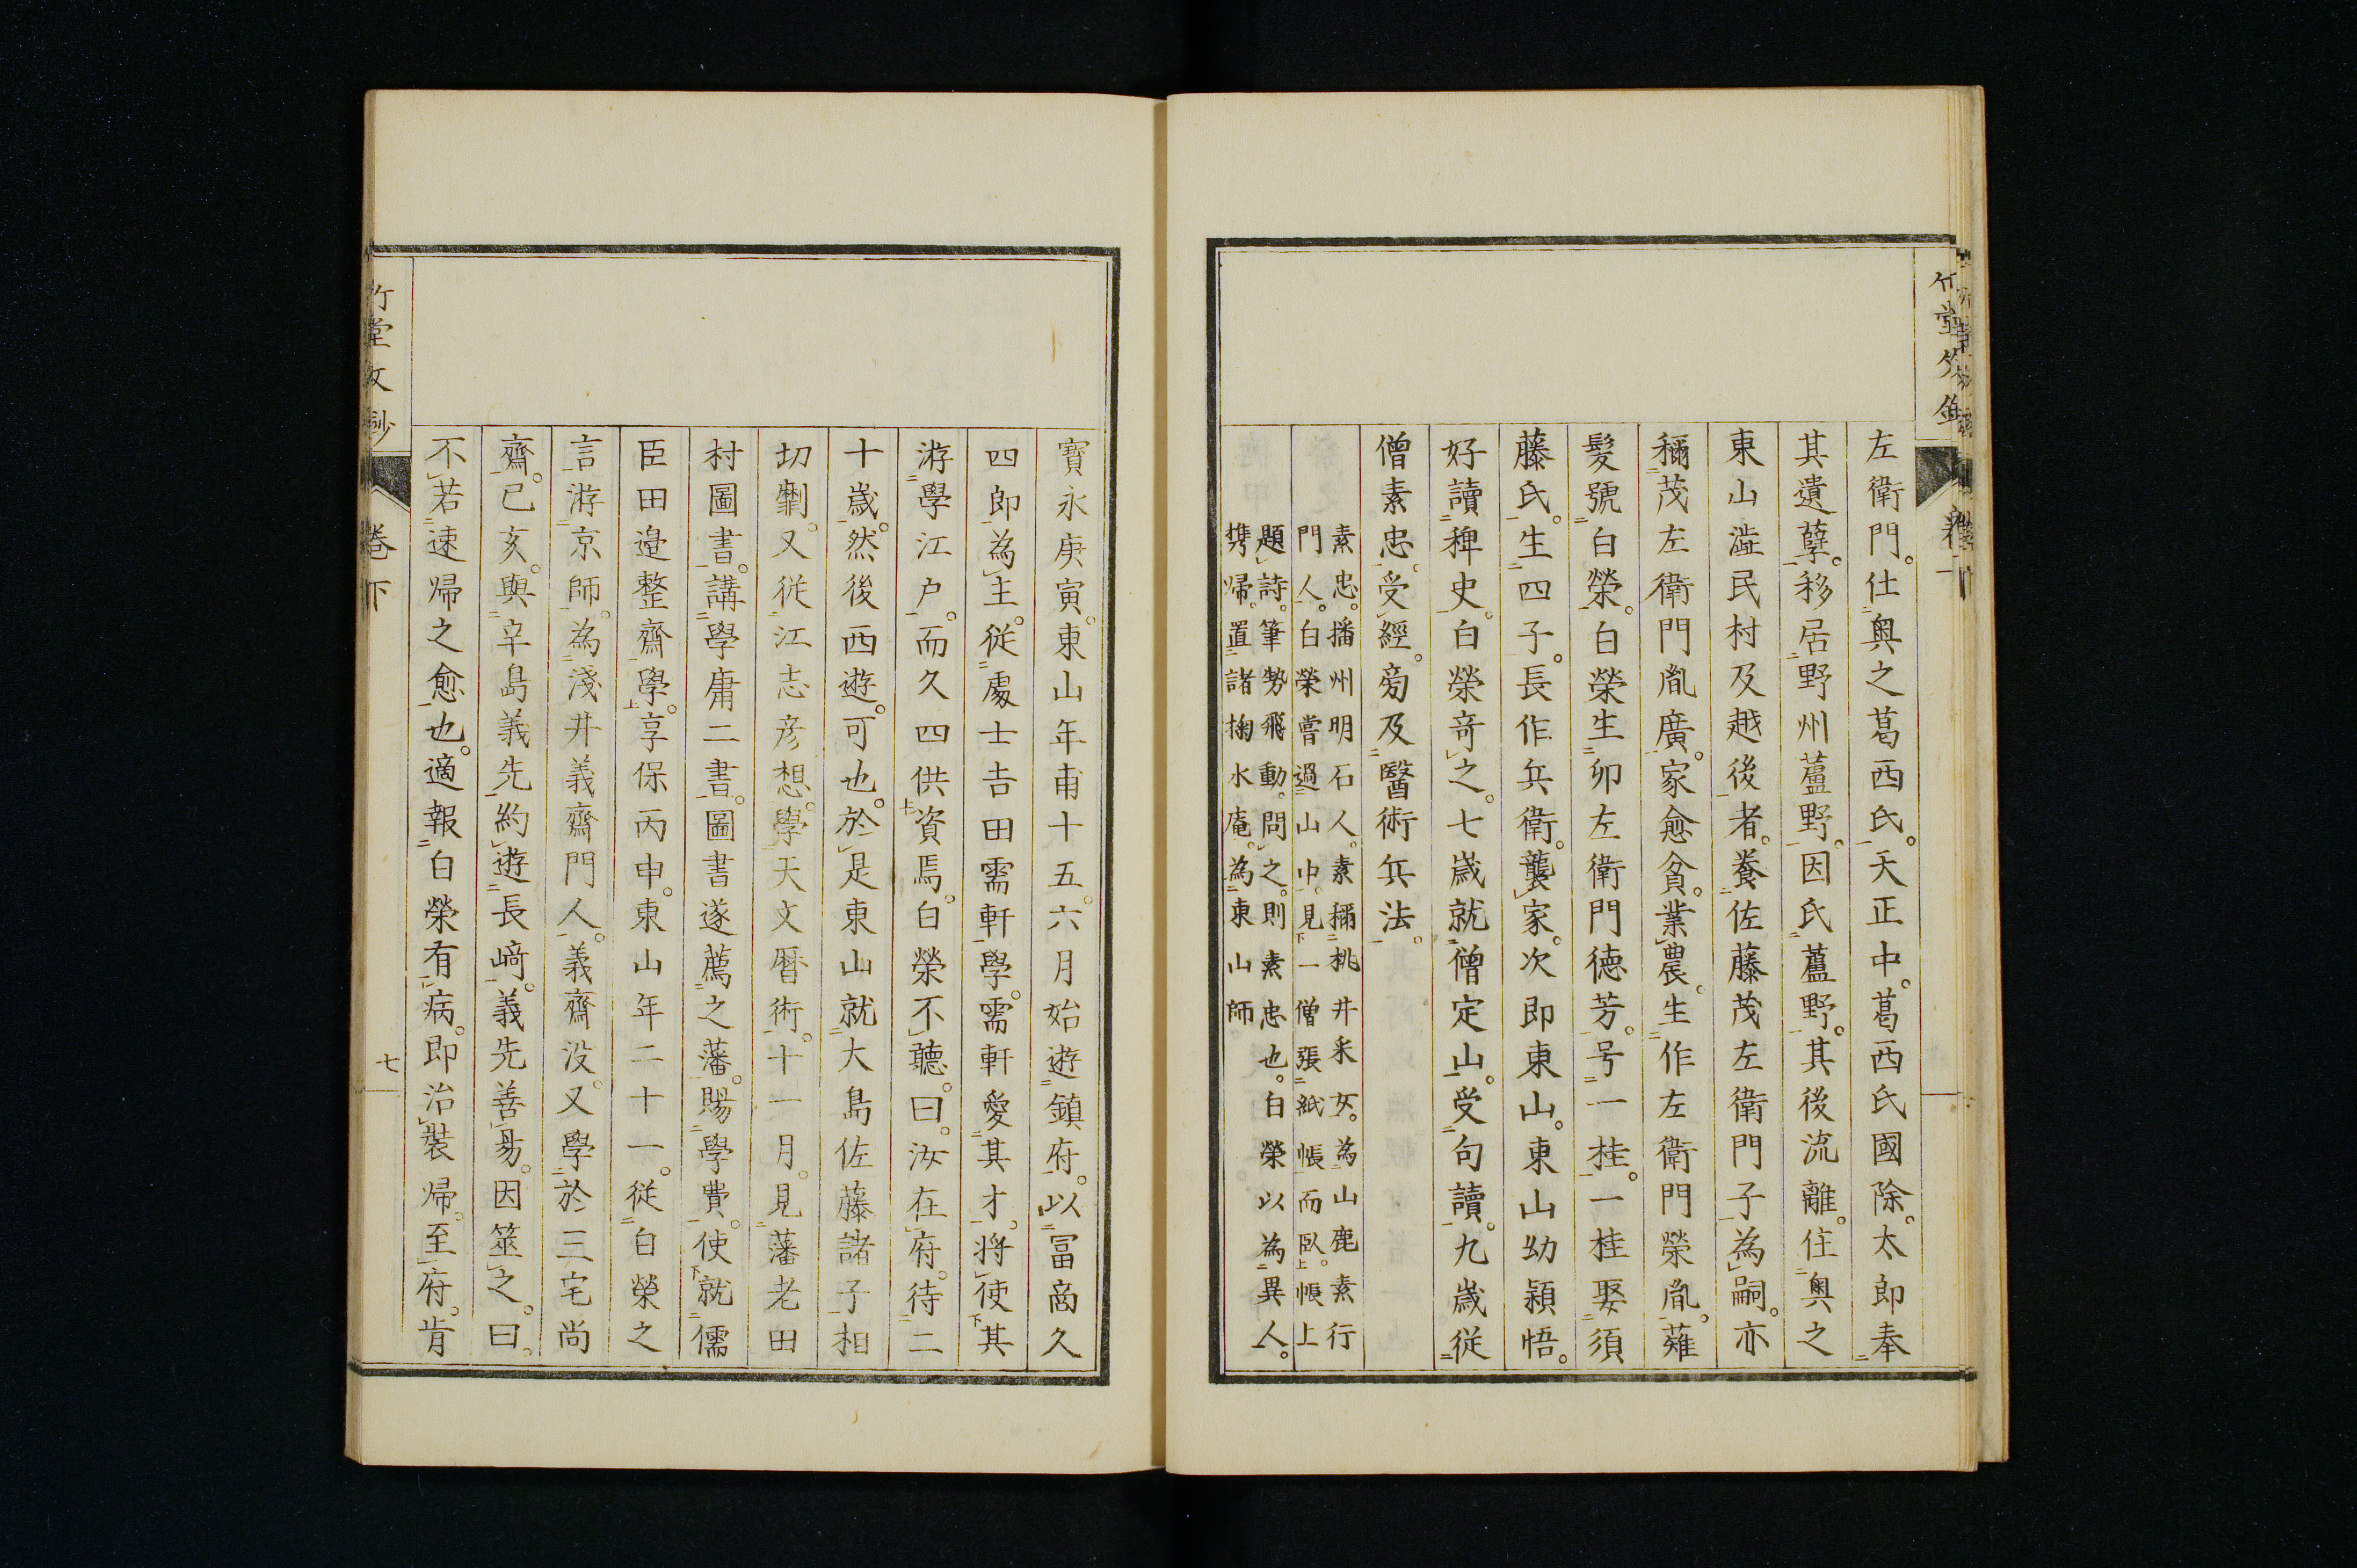 左衛門。仕奥之葛西氏。天正中。葛西氏國除。太郎奉
其遺孽。移居野州蘆野。因氏蘆野。其後流離。住奥之
東山澁民村及越後者。養佐藤茂左衛門子為嗣。亦
稱茂左衛門胤廣。家愈貧。業農。生作左衛門榮胤。薙
髪號白榮。白榮生卯左衛門徳芳。号一桂。一桂娶須
藤氏。生四子。長作兵衛。襲家。次即東山。東山幼穎悟。
好讀稗史。白榮竒之。七歳就僧定山。受句讀。九歳從
僧素忠。受經。旁及醫術兵法。
素忠。播州明石人。素稱桃井釆女。為山鹿素行
門人。白榮嘗過山中。見一僧張紙帳而臥。帳上
題詩。筆勢飛動。問之。則素忠也。白榮以為異人。
携歸。置諸掬水庵。為東山師
寳永庚寅。東山年甫十五。六月始遊鎮府。以冨啇久
四郎為主。從處士吉田需軒學。需軒愛其才。將使其
游學江户。而久四供資焉。白榮不聽。曰。汝在府。待二
十歳。然後西遊。可也。於是東山就大島佐藤諸子相
切劘。又從江志彦想。學天文暦術。十一月。見藩老田
村圖書。講學庸二書。圖書遂薦之藩。賜學費。使就儒
臣田邉整齋學。享保丙申。東山年二十一。從白榮之
言。游京師。為淺井義齋門人。義齋没。又學於三宅尚
齋。己亥。與辛島義先約遊長﨑。義先善易。因筮之。曰。
不若速歸之愈也。適報白榮有病。即治裝歸。至府。肯
竹堂文鈔
卷下
七